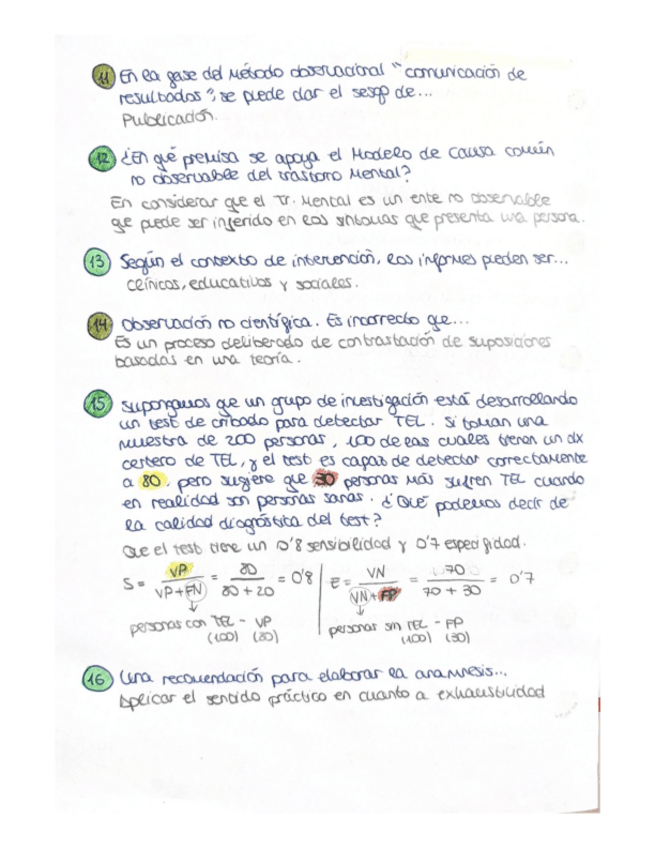 11 En la fase del método observacional "comunicación de
resultados", se puede dar el sesgo de...
Publicación.
12 ¿En qué premisa se apoya el Modelo de causa común
no observable del trastorno Mental?
En considerar que el Tr. Mental es un ente no observable
que puede ser inferido en los síntomas que presenta una persona.
13 Según el contexto de intervención, los informes pueden ser...
Clínicos, educativos y sociales.
14 Observación no científica. Es incorrecto que...
Es un proceso deliberado de contrastación de suposiciones
basadas en una teoría.
15 Supongamos que un grupo de investigación está desarrollando
un test de cribado para detectar TEL. Si toman una
muestra de 200 personas, 100 de las cuales tienen un dx
certero de TEL, y el test es capaz de detectar correctamente
a 80, pero sugiere que 30 personas más sufren TEL cuando
en realidad son personas sanas. ¿Qué podemos decir de
la calidad diagnóstica del test?
Que el test tiene un 0'8 sensibilidad y 0'7 especifidad.
S = VP / VP+FN = 80 / 80 + 20 = 0'8 | E = VN / VN+FP = 70 / 70 + 30 = 0'7
personas con TEL - VP (100) (80)
personas sin TEL - FP (100) (30)
16 Una recomendación para elaborar la anamnesis...
Aplicar el sentido práctico en cuanto a exhaustividad